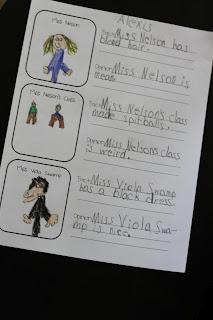 Alexis
Miss Nelson
Fact Miss Nelson has
blond hair.
Opinion Miss Nelson is
mean.
Miss Nelson's Class
Fact Miss Nelson's class
made spitballs.
Opinion Miss Nelson's class
is weird.
Miss Viola Swamp
Fact Miss Viola Swamp
has a black dress.
Opinion Miss Viola Swa-
mp is nice.